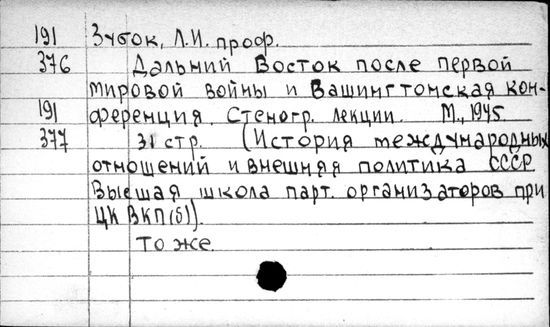 191 Зубок, Л.И. проф.
376 Дальний Восток после первой
мировой войны и Вашингтонская кон-
191 ференция. Стеногр. лекции. М., 1945.
377 31 стр. (История международных
отношений и внешняя политика СССР.
Высшая школа парт. организаторов при
ЦК ВКП(б)).
То же.